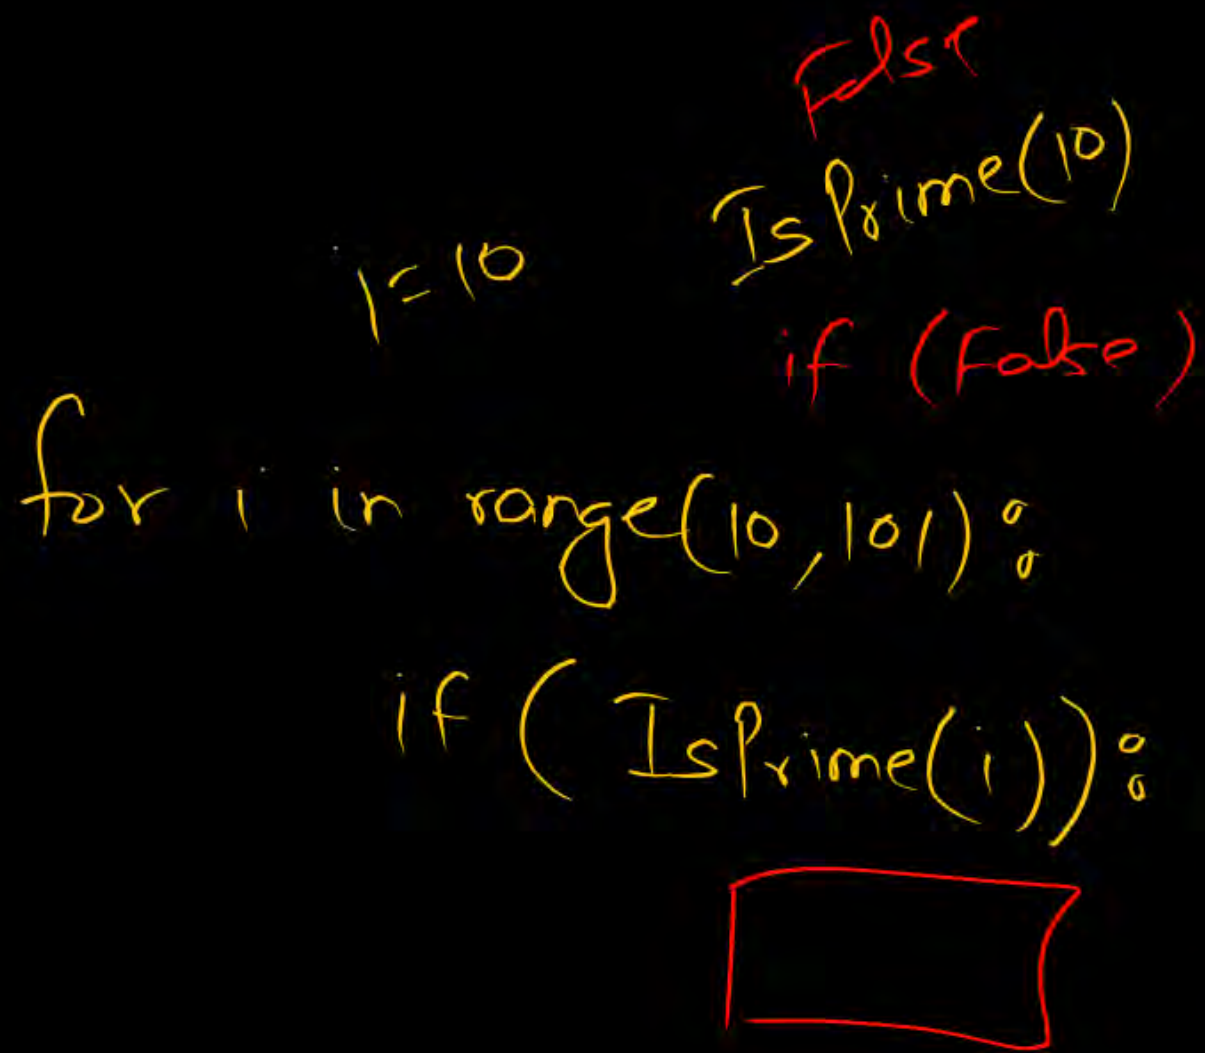 False
IsPrime(10)
i=10
if (False)
for i in range(10,101):
if ( IsPrime(i)):